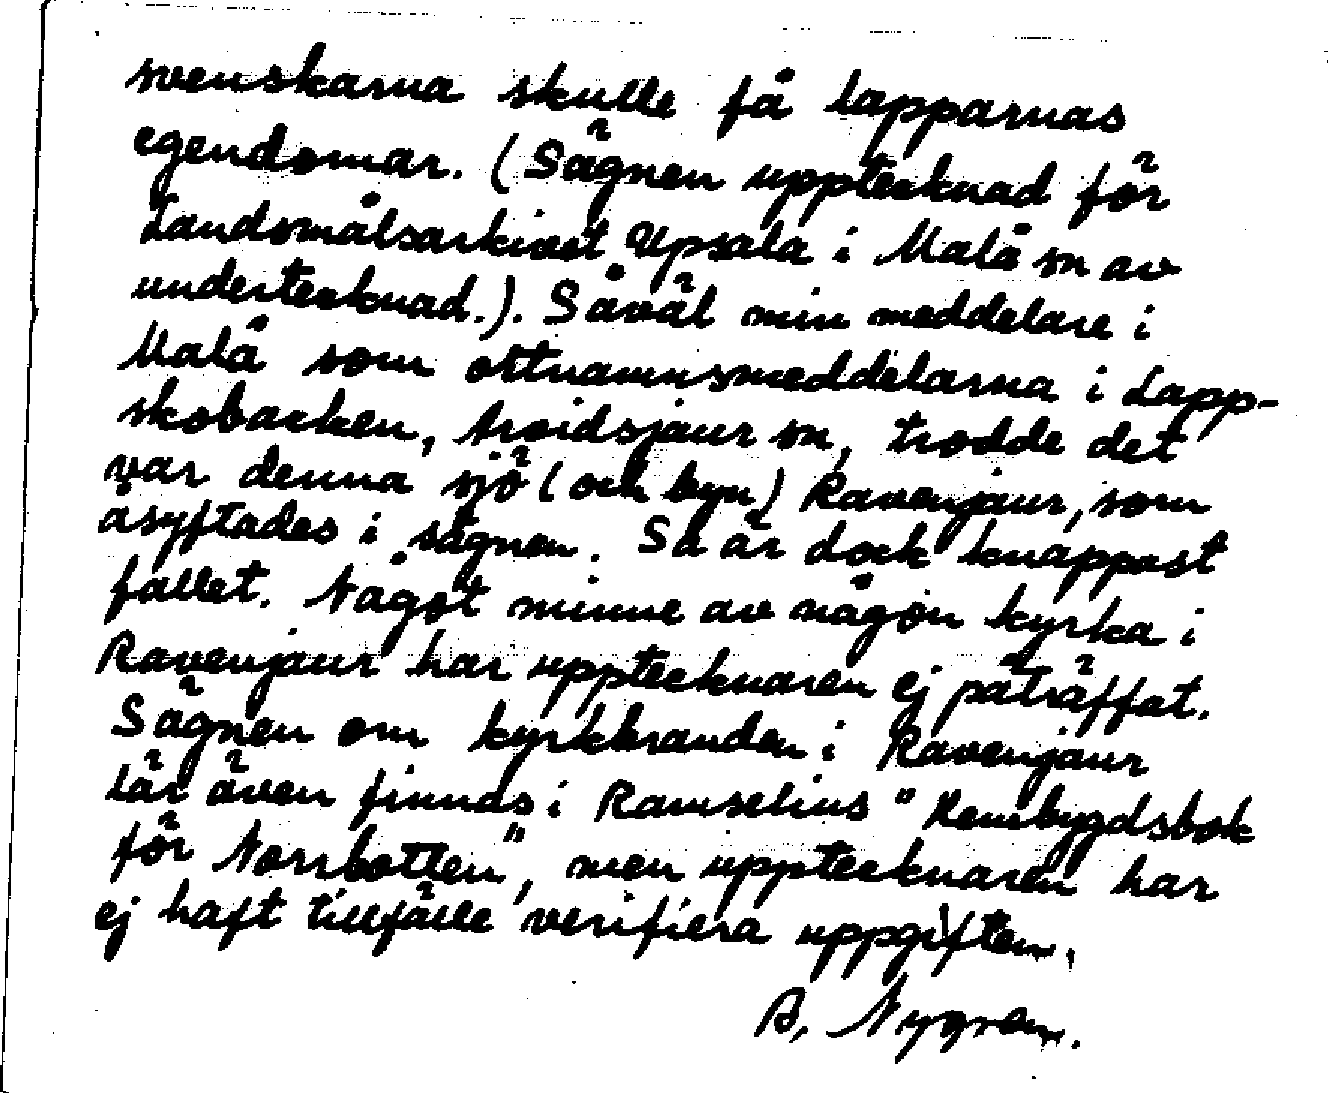 svenskarna skulle få lapparnas
egendomar. (Sägnen upptecknad för
Landsmålsarkivet Upsala i Malå sn av
undertecknad.). Såväl min meddelare i
Malå som ortnamnsmeddelarna i Lapp-
skobacken, Arvidsjaur sn, trodde det
var denna sjö (och byn) Ravenjaur, som
åsyftades i sägnen. Så är dock knappast
fallet. Något minne av någon kyrka i
Ravenjaur har upptecknaren ej påträffat.
Sägnen om kyrkbranden i Ravenjaur
lär även finnas i Ramselius "Hembygdsbok
för Norrbotten", men upptecknaren har
ej haft tillfälle verifiera uppgiften.
B. Nygren.